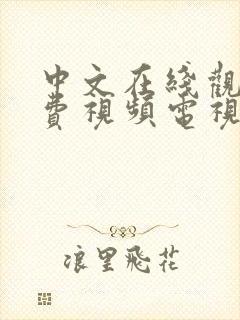 中文在綫觀
費視頻電視
浪里飛花